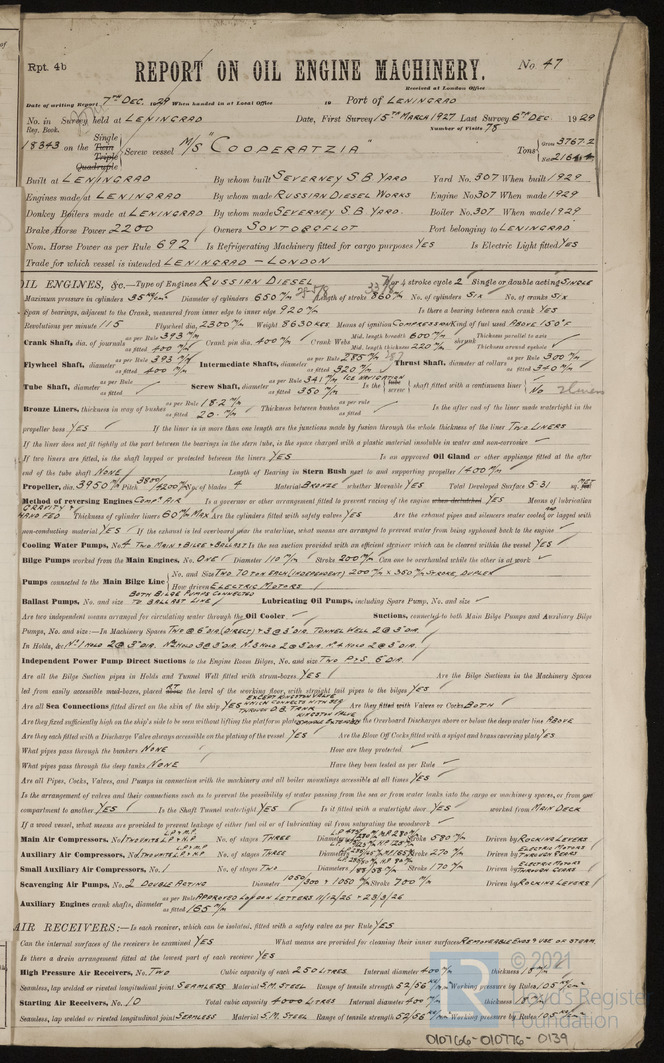 Rpt. 4b
REPORT ON OIL ENGINE MACHINERY.
No. 47
Received at London Office
Date of writing Report 7TH DEC. 1929 When handed in at Local Office 19 Port of LENINGRAD
No. in Survey held at LENINGRAD Date, First Survey 15TH MARCH 1927 Last Survey 6TH DEC. 1929
Reg. Book. Number of Visits 75
18343 on the Single Twin Triple Quadruple Screw vessel M/S "COOPERATZIA" Tons Gross 3767.2 Net
Built at LENINGRAD By whom built SEVERNEY S.B. YARD Yard No. 307 When built 1929
Engines made at LENINGRAD By whom made RUSSIAN DIESEL WORKS Engine No. 307 When made 1929
Donkey Boilers made at LENINGRAD By whom made SEVERNEY S.B. YARD. Boiler No. 307 When made 1929
Brake Horse Power 2200 Owners SOVTORGFLOT Port belonging to LENINGRAD
Nom. Horse Power as per Rule 692 Is Refrigerating Machinery fitted for cargo purposes YES Is Electric Light fitted YES
Trade for which vessel is intended LENINGRAD - LONDON
OIL ENGINES, &c.—Type of Engines RUSSIAN DIESEL 2 or 4 stroke cycle 2 Single or double acting SINGLE
Maximum pressure in cylinders 35 Diameter of cylinders 650 m/m Length of stroke 860 m/m No. of cylinders SIX No. of cranks SIX
Span of bearings, adjacent to the Crank, measured from inner edge to inner edge 920 m/m Is there a bearing between each crank YES
Revolutions per minute 115 Flywheel dia. 2300 m/m Weight 8630 KGS. Means of ignition COMPRESSION Kind of fuel used ABOVE 150°F
Crank Shaft, dia. of journals as per Rule 393 m/m as fitted 400 m/m Crank pin dia. 400 m/m Crank Webs Mid. length breadth 600 m/m Mid. length thickness 220 m/m shrunk Thickness parallel to axis Thickness around eyehole
Flywheel Shaft, diameter as per Rule 393 m/m as fitted 400 m/m Intermediate Shafts, diameter as per Rule 285 m/m as fitted 320 m/m Thrust Shaft, diameter at collars as per Rule 300 m/m as fitted 340 m/m
Tube Shaft, diameter as per Rule as fitted Screw Shaft, diameter as per Rule 341 m/m ICE NAVIGATION as fitted 350 m/m Is the tube screw shaft fitted with a continuous liner NO
Bronze Liners, thickness in way of bushes as per Rule 18.2 m/m as fitted 20. m/m Thickness between bushes as per rule as fitted Is the after end of the liner made watertight in the
propeller boss YES If the liner is in more than one length are the junctions made by fusion through the whole thickness of the liner TWO LINERS
If the liner does not fit tightly at the part between the bearings in the stern tube, is the space charged with a plastic material insoluble in water and non-corrosive
If two liners are fitted, is the shaft lapped or protected between the liners YES Is an approved Oil Gland or other appliance fitted at the after
end of the tube shaft NONE Length of Bearing in Stern Bush next to and supporting propeller 1400 m/m
Propeller, dia. 3950 m/m Pitch 3800/4200 m/m No. of blades 4 Material BRONZE whether Moveable YES Total Developed Surface 5.31 sq. MET
Method of reversing Engines COMP. AIR Is a governor or other arrangement fitted to prevent racing of the engine when declutched YES Means of lubrication
GRAVITY & HAND FED Thickness of cylinder liners 60 m/m MAX Are the cylinders fitted with safety valves YES Are the exhaust pipes and silencers water cooled or lagged with
non-conducting material YES If the exhaust is led overboard near the waterline, what means are arranged to prevent water from being syphoned back to the engine
Cooling Water Pumps, No. 4 TWO MAIN & BILGE & BALLAST Is the sea suction provided with an efficient strainer which can be cleared within the vessel YES
Bilge Pumps worked from the Main Engines, No. ONE Diameter 110 m/m Stroke 200 m/m Can one be overhauled while the other is at work
Pumps connected to the Main Bilge Line No. and Size TWO 70 TON EACH (INDEPENDENT) 200 m/m x 350 m/m STROKE, DUPLEX How driven ELECTRIC MOTORS
Ballast Pumps, No. and size BOTH BILGE PUMPS CONNECTED TO BALLAST LINE Lubricating Oil Pumps, including Spare Pump, No. and size
Are two independent means arranged for circulating water through the Oil Cooler Suctions, connected to both Main Bilge Pumps and Auxiliary Bilge
Pumps, No. and size:—In Machinery Spaces TWO @ 6" DIA. (DIRECT) & 3 @ 3" DIA. TUNNEL WELL 2 @ 3" DIA.
In Holds, &c. No 1 HOLD 2 @ 3" DIA. No 2 HOLD 3 @ 3" DIA. No 3 HOLD 2 @ 3" DIA. No 4 HOLD 2 @ 3" DIA.
Independent Power Pump Direct Suctions to the Engine Room Bilges, No. and size TWO P & S. 6" DIA.
Are all the Bilge Suction pipes in Holds and Tunnel Well fitted with strum-boxes YES Are the Bilge Suctions in the Machinery Spaces
led from easily accessible mud-boxes, placed AT above the level of the working floor, with straight tail pipes to the bilges YES
Are all Sea Connections fitted direct on the skin of the ship YES EXCEPT KINGSTON VALVE WHICH CONNECTS WITH SEA THROUGH D.B. TANK Are they fitted with Valves or Cocks BOTH
Are they fixed sufficiently high on the ship's side to be seen without lifting the platform plates KINGSTON VALVE SPINDLE EXTENDED the Overboard Discharges above or below the deep water line ABOVE
Are they each fitted with a Discharge Valve always accessible on the plating of the vessel YES Are the Blow Off Cocks fitted with a spigot and brass covering plate YES
What pipes pass through the bunkers NONE How are they protected
What pipes pass through the deep tanks NONE Have they been tested as per Rule
Are all Pipes, Cocks, Valves, and Pumps in connection with the machinery and all boiler mountings accessible at all times YES
Is the arrangement of valves and their connections such as to prevent the possibility of water passing from the sea or from water tanks into the cargo or machinery spaces, or from one
compartment to another YES Is the Shaft Tunnel watertight YES Is it fitted with a watertight door YES worked from MAIN DECK
If a wood vessel, what means are provided to prevent leakage of either fuel oil or of lubricating oil from saturating the woodwork
Main Air Compressors, No. TWO UNITS No. of stages THREE Diameters Stroke 580 m/m Driven by ROCKING LEVERS
Auxiliary Air Compressors, No. TWO UNITS No. of stages THREE Diameters Stroke 270 m/m Driven by ELECTRIC MOTORS THROUGH GEARS
Small Auxiliary Air Compressors, No. 1 No. of stages TWO Diameters Stroke 170 m/m Driven by ELECTRIC MOTORS THROUGH GEARS
Scavenging Air Pumps, No. 2 DOUBLE ACTING Diameter Stroke 700 m/m Driven by ROCKING LEVERS
Auxiliary Engines crank shafts, diameter as per Rule APPROVED LONDON LETTERS 11/12/26 & 23/3/26 as fitted 165 m/m
AIR RECEIVERS:—Is each receiver, which can be isolated, fitted with a safety valve as per Rule YES
Can the internal surfaces of the receivers be examined YES What means are provided for cleaning their inner surfaces REMOVEABLE ENDS & USE OF STEAM.
Is there a drain arrangement fitted at the lowest part of each receiver YES
High Pressure Air Receivers, No. TWO Cubic capacity of each 250 LITRES Internal diameter 400 m/m thickness
Seamless, lap welded or riveted longitudinal joint SEAMLESS Material S.M. STEEL Range of tensile strength 52/56 Working pressure by Rules 105
Starting Air Receivers, No. 10 Total cubic capacity 4000 LITRES Internal diameter 400 m/m thickness
Seamless, lap welded or riveted longitudinal joint SEAMLESS Material S.M. STEEL Range of tensile strength 52/56 Working pressure by Rules 105
© 2021
Lloyd's Register
Foundation
010766-010776-0139